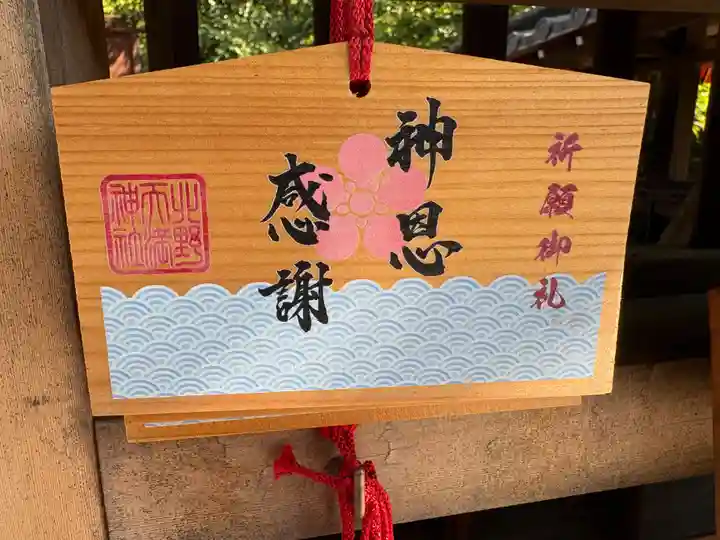 祈願御礼
神恩
感謝
北野
天満
神社